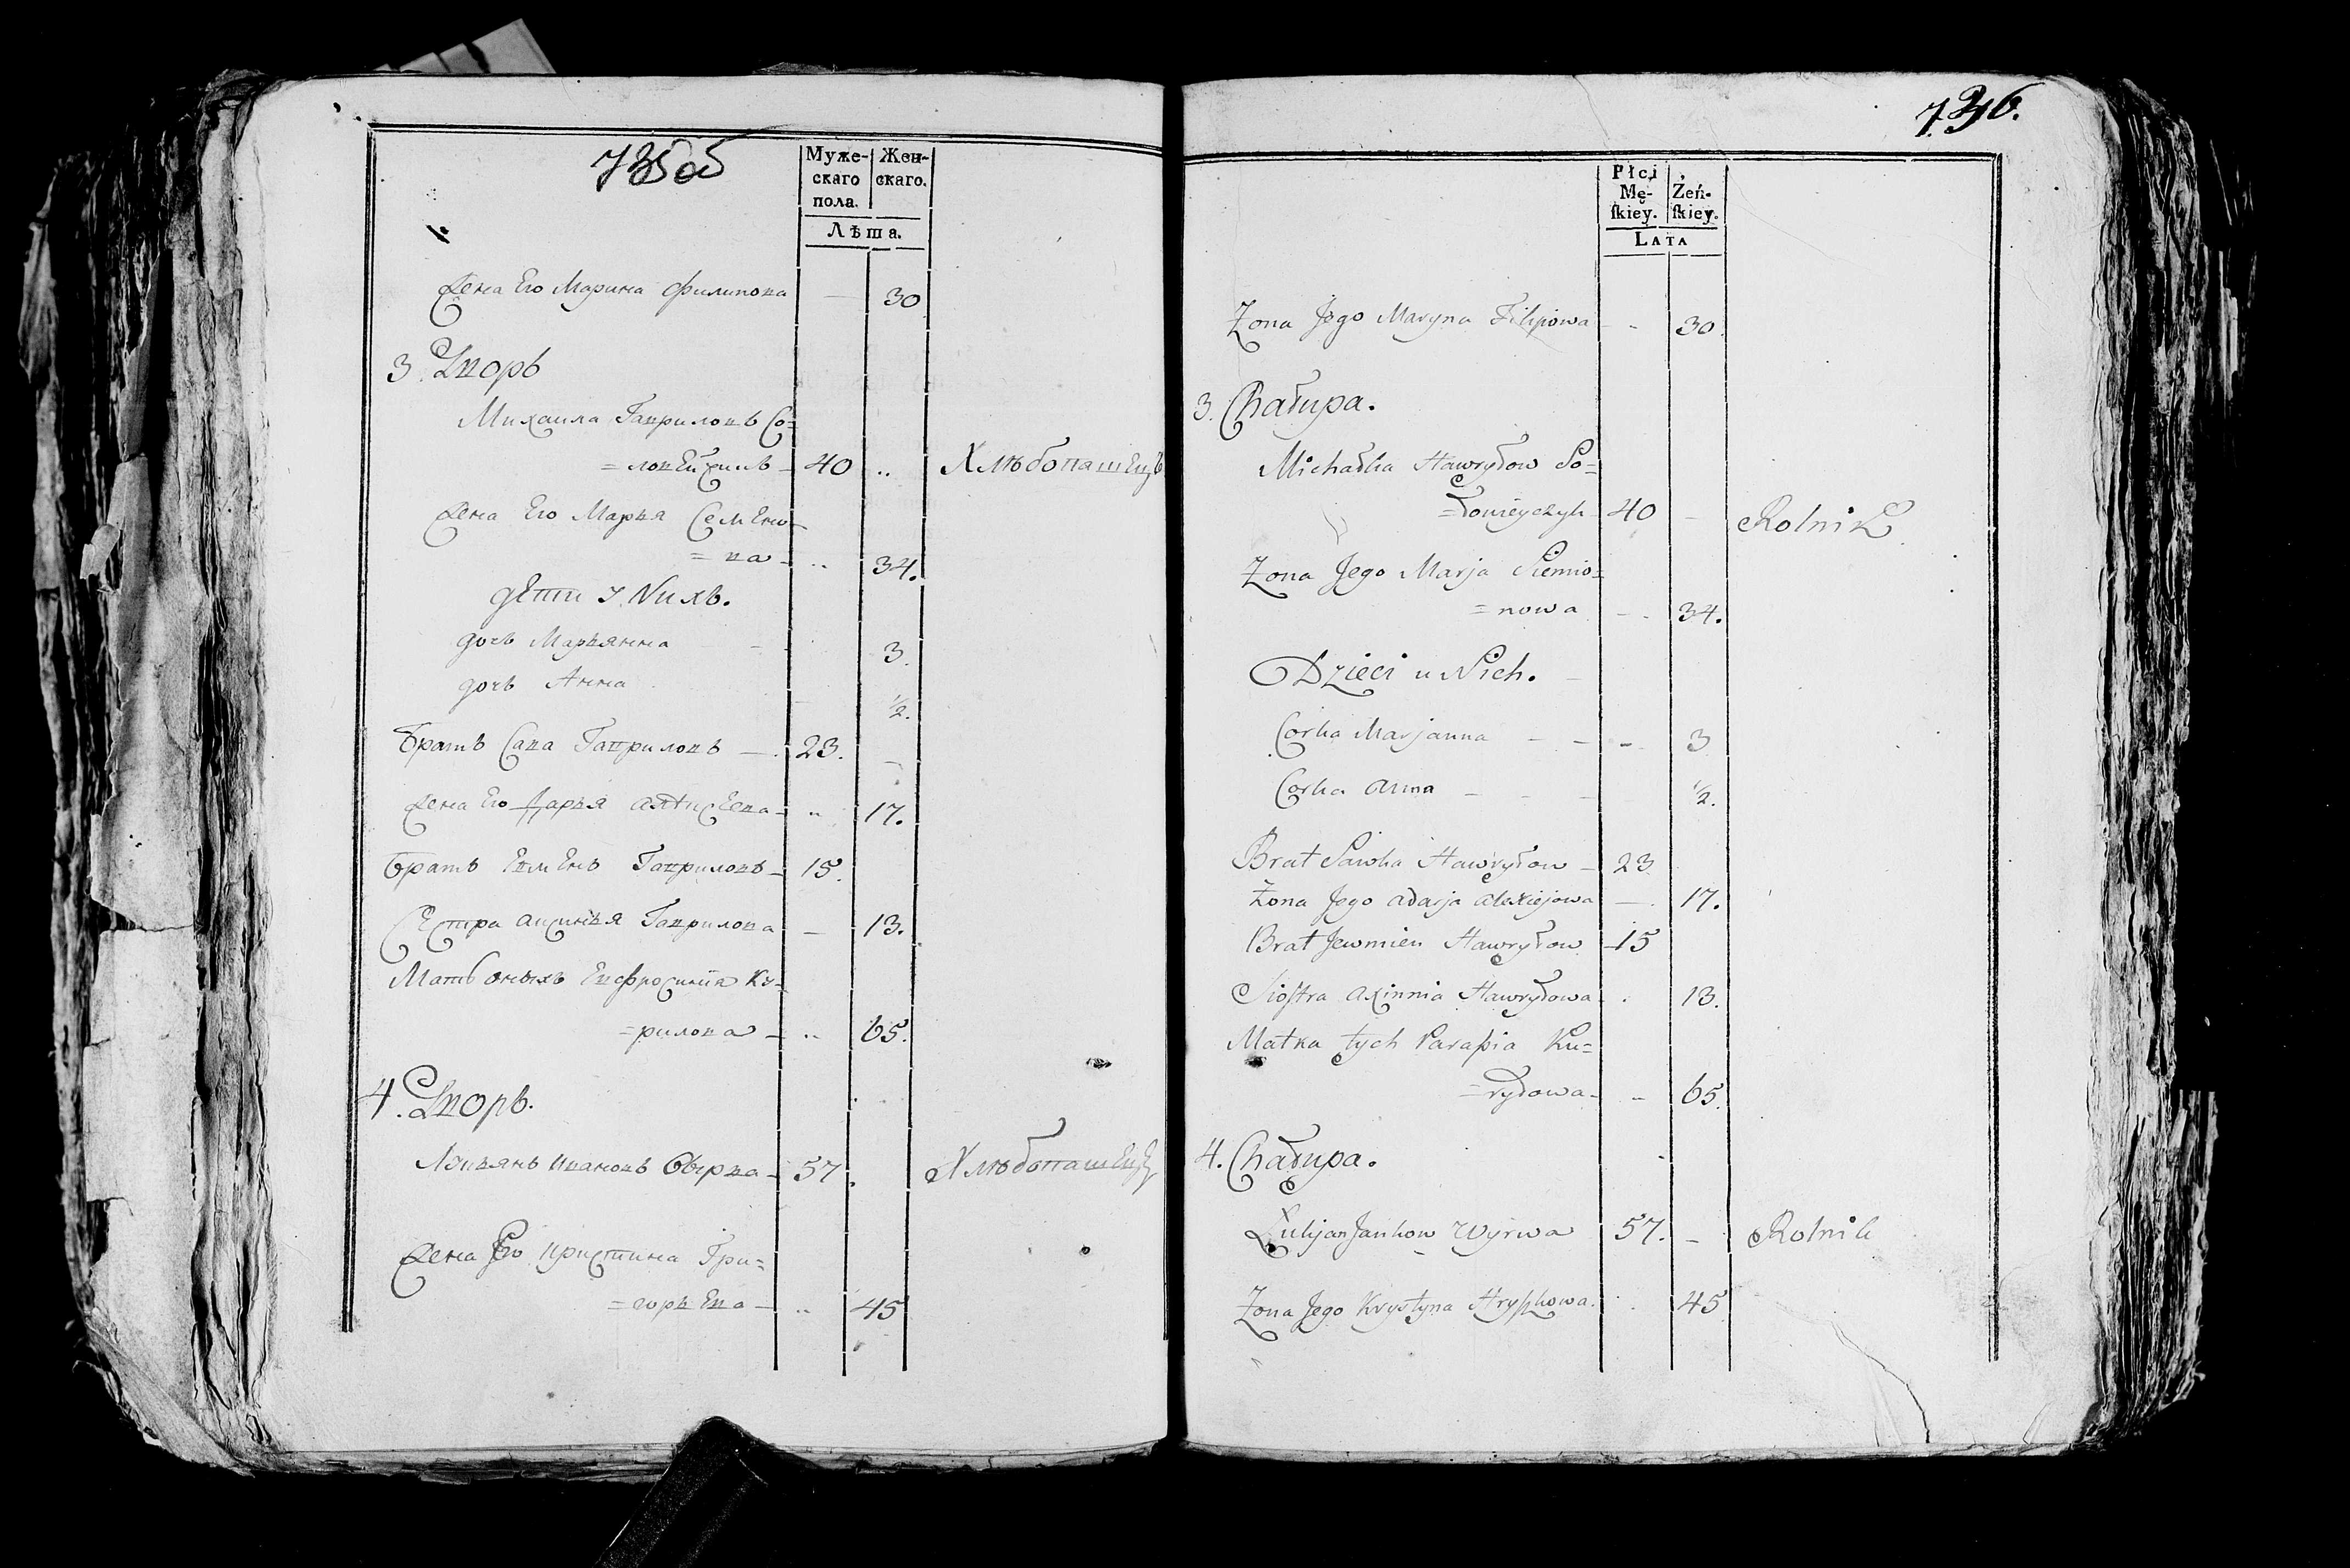 735 об
Муже-
скаго
пола.
Жен-
скаго.
Лѣта.
Жена Его Марина Филипова — 30
3. Дворъ
Михаила Гавриловъ Со=
=ловейчикъ — 40 .. Хлѣбопашецъ
Жена Его Марья Семено=
=ва — .. 34.
Дети у Нихъ.
дочь Марьянна — 3.
дочь Анна 1/2.
Братъ Сава Гавриловъ — 23. —
Жена Его Дарья Алексеева — .. 17.
Братъ Евменъ Гавриловъ — 15.
Сестра Аксинья Гаврилова — 13.
Мать оныхъ Евфросинія Ку=
=рилова — .. 65.
4. Дворъ.
Лукьянъ Ивановъ — 57. Хлѣбопашецъ
Жена Его Кристина Гри=
=горьева — .. 45
736.
Płci
Mę-
ſkiey.
Żeń-
ſkiey.
LATA
Żona Jego Maryna Filipowa - 30.
3. Chałupa.
Michałka Hawryłow So=
=łowieyczyk 40 - Rolnik
Żona Jego Marja Siemio=
=nowa - 34.
Dzieci u Nich.
Corka Marjanna - - - 3
Corka Anna - - - 1/2.
Brat Sawka Hawryłow - 23
Żona Jego Adarja Alexiejowa — 17.
Brat Jewmien Hawryłow 15
Siostra Axinnia Hawryłowa . 13.
Matka tych Parasia Ku=
=ryłowa - .. 65.
4. Chałupa.
Łukjan Jankow Wyrwa 57. - Rolnik
Żona Jego Krystyna Hryszkowa . 45